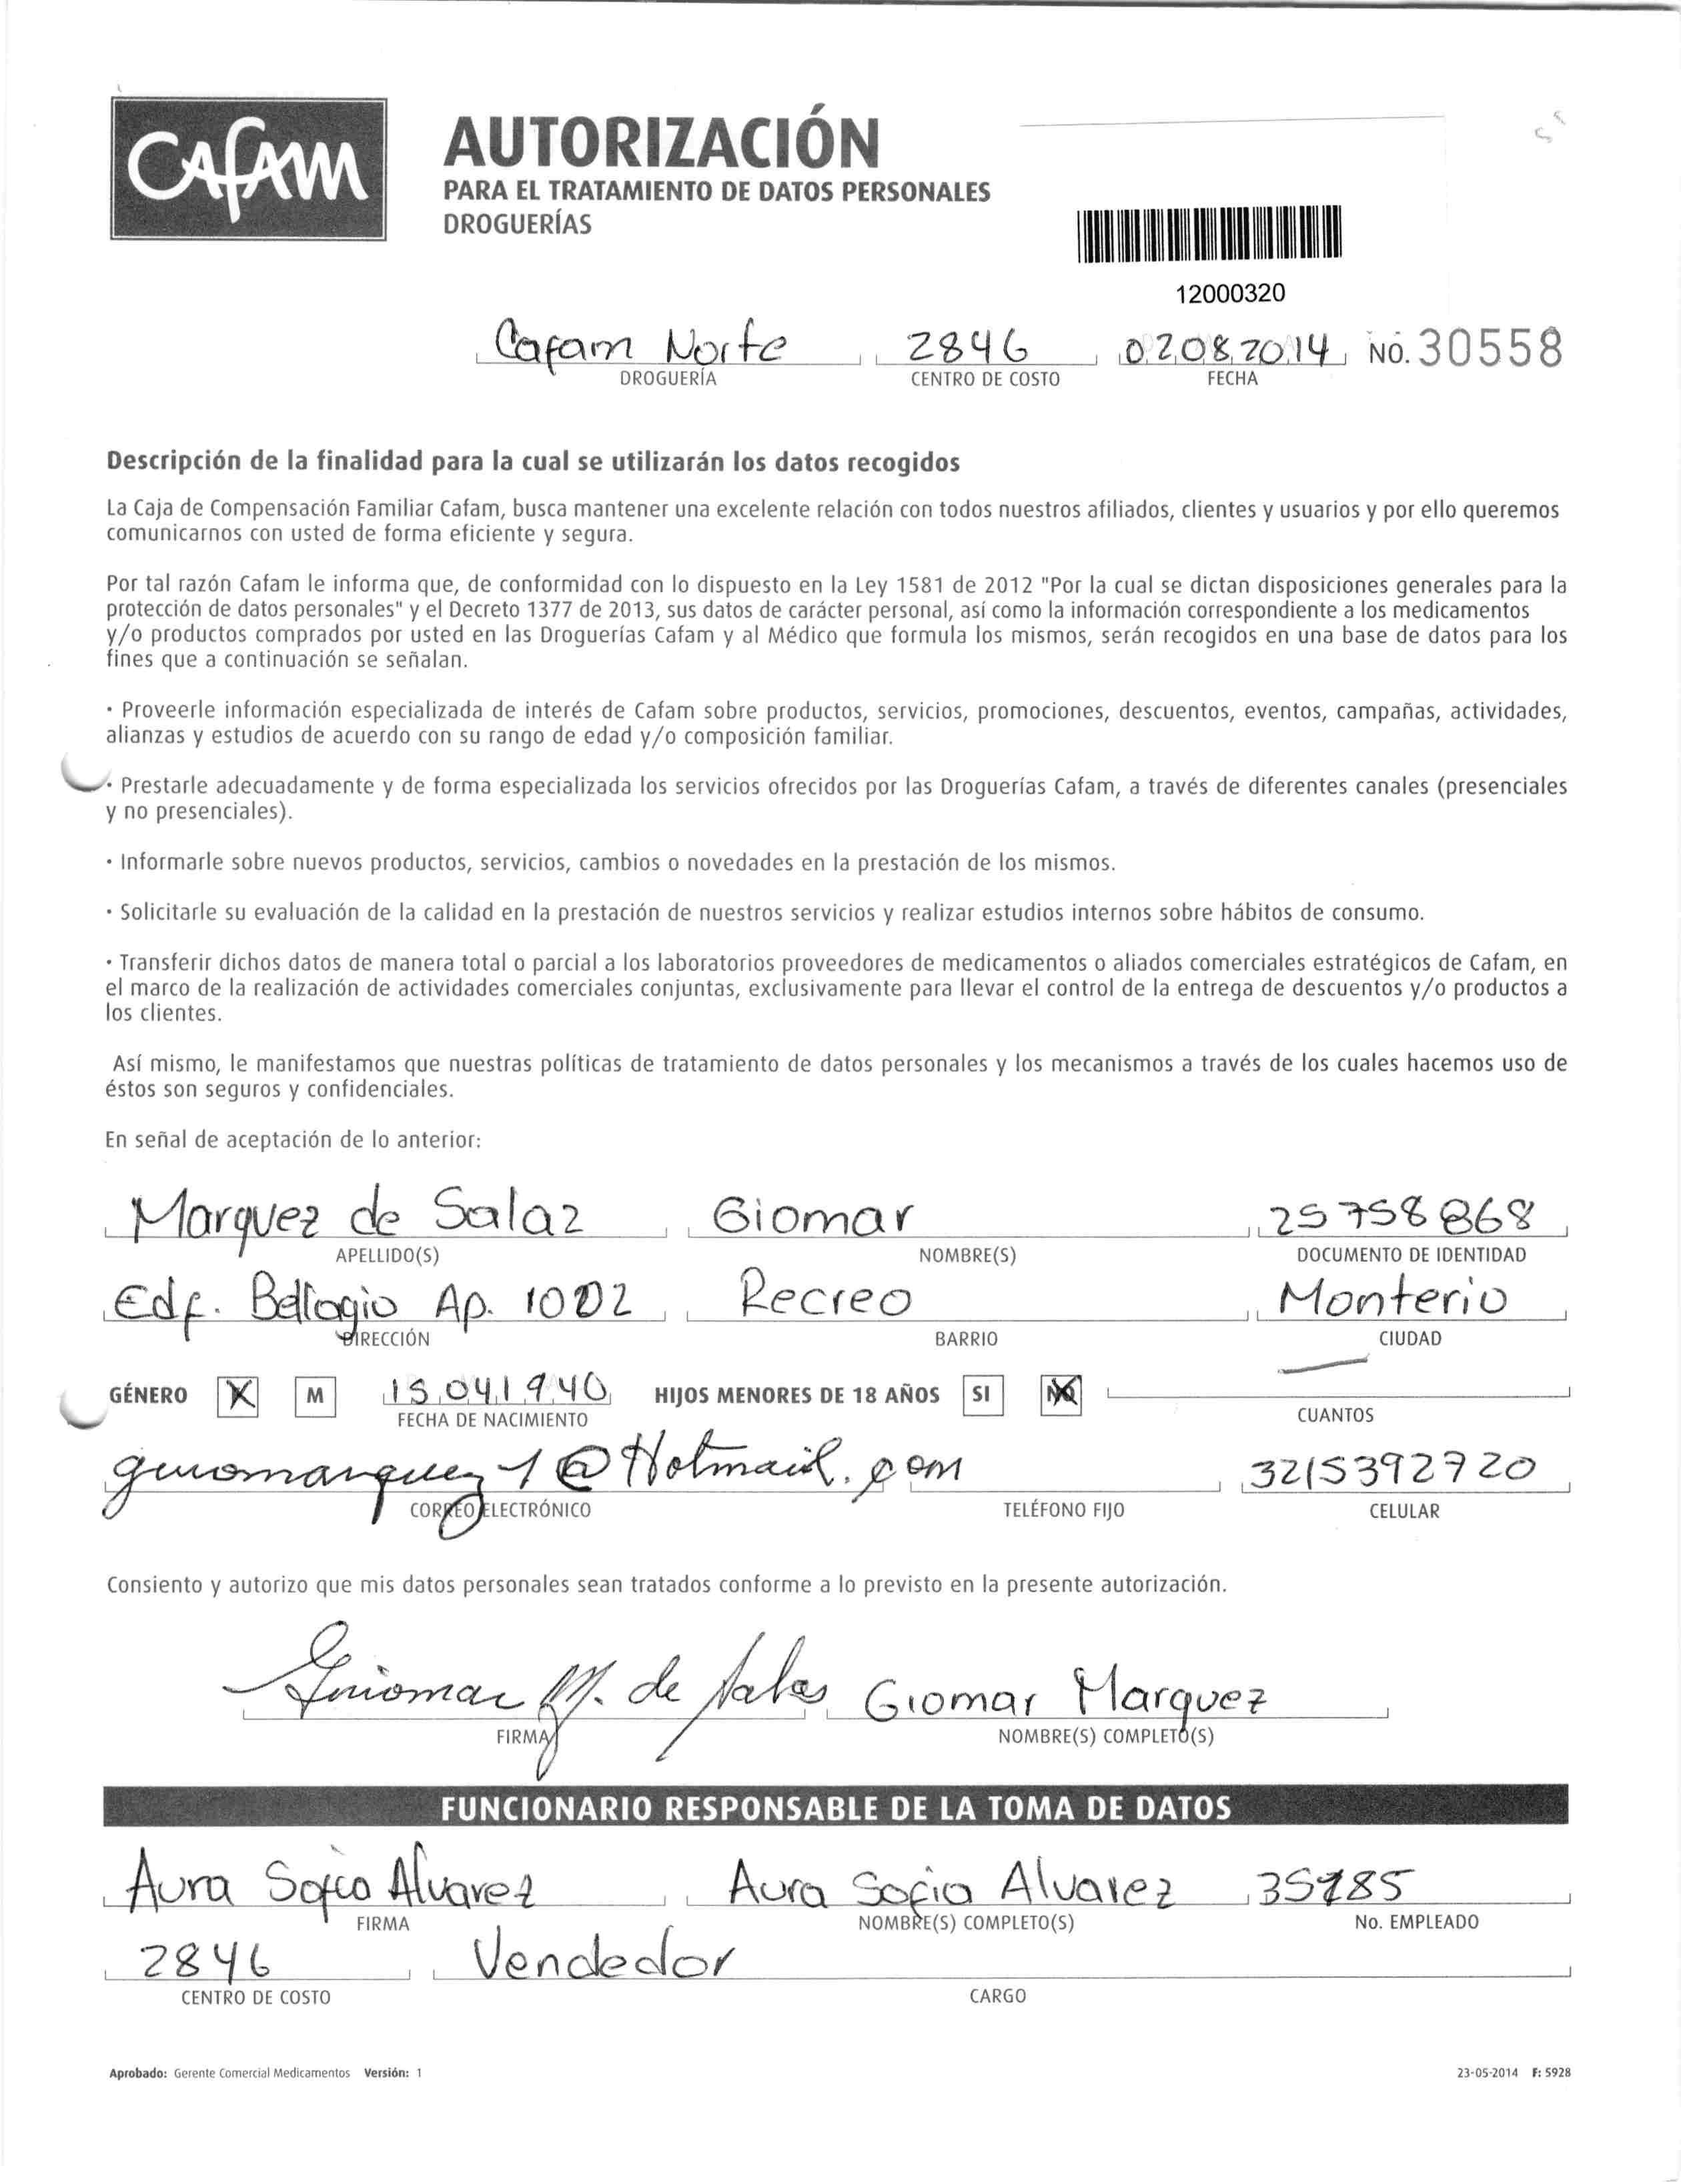 CAFAM
AUTORIZACIÓN
PARA EL TRATAMIENTO DE DATOS PERSONALES
DROGUERÍAS
12000320
Cafam Norte 2846 02082014 NO. 30558
DROGUERÍA CENTRO DE COSTO FECHA
Descripción de la finalidad para la cual se utilizarán los datos recogidos
La Caja de Compensación Familiar Cafam, busca mantener una excelente relación con todos nuestros afiliados, clientes y usuarios y por ello queremos
comunicarnos con usted de forma eficiente y segura.
Por tal razón Cafam le informa que, de conformidad con lo dispuesto en la Ley 1581 de 2012 "Por la cual se dictan disposiciones generales para la
protección de datos personales" y el Decreto 1377 de 2013, sus datos de carácter personal, así como la información correspondiente a los medicamentos
y/o productos comprados por usted en las Droguerías Cafam y al Médico que formula los mismos, serán recogidos en una base de datos para los
fines que a continuación se señalan.
· Proveerle información especializada de interés de Cafam sobre productos, servicios, promociones, descuentos, eventos, campañas, actividades,
alianzas y estudios de acuerdo con su rango de edad y/o composición familiar.
· Prestarle adecuadamente y de forma especializada los servicios ofrecidos por las Droguerías Cafam, a través de diferentes canales (presenciales
y no presenciales).
· Informarle sobre nuevos productos, servicios, cambios o novedades en la prestación de los mismos.
· Solicitarle su evaluación de la calidad en la prestación de nuestros servicios y realizar estudios internos sobre hábitos de consumo.
· Transferir dichos datos de manera total o parcial a los laboratorios proveedores de medicamentos o aliados comerciales estratégicos de Cafam, en
el marco de la realización de actividades comerciales conjuntas, exclusivamente para llevar el control de la entrega de descuentos y/o productos a
los clientes.
Así mismo, le manifestamos que nuestras políticas de tratamiento de datos personales y los mecanismos a través de los cuales hacemos uso de
éstos son seguros y confidenciales.
En señal de aceptación de lo anterior:
Marquez de Salaz Giomar 25758868
APELLIDO(S) NOMBRE(S) DOCUMENTO DE IDENTIDAD
Edf. Bellagio Ap. 1002 Recreo Monterio
DIRECCIÓN BARRIO CIUDAD
GÉNERO X M 15041940 HIJOS MENORES DE 18 AÑOS SI NO
FECHA DE NACIMIENTO CUANTOS
@Hotmail.com 3215392720
CORREO ELECTRÓNICO TELÉFONO FIJO CELULAR
Consiento y autorizo que mis datos personales sean tratados conforme a lo previsto en la presente autorización.
Guiomar M. de Salas Giomar Marquez
FIRMA NOMBRE(S) COMPLETO(S)
FUNCIONARIO RESPONSABLE DE LA TOMA DE DATOS
Aura Sofia Alvarez Aura Sofia Alvarez
FIRMA NOMBRE(S) COMPLETO(S) No. EMPLEADO
2846 Vendedor
CENTRO DE COSTO CARGO
Aprobado: Gerente Comercial Medicamentos Versión: 1 23-05-2014 F: 5928